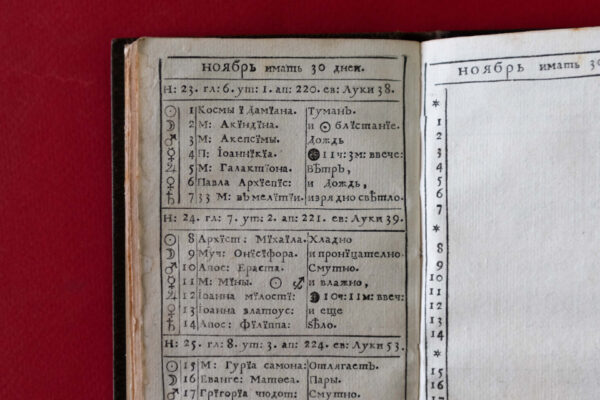 НОЯБРЬ имать 30 дней.
Н: 23. гл: 6. ут: 1. ап: 220. ев: Луки 38.
☉ 1 Космы ї Дамїана. Туманъ.
☽ 2 М: Акїндїна. и ☉ блїстанїе.
♂ 3 М: Акепсїмы. Дождь
☿ 4 П: Іоаннїкїа. 11ч: 3м: ввече:
♃ 5 М: Галактїона. Вѣтръ,
♀ 6 Павла Архїепїс: и Дождь,
♄ 7 33 М: въ мелїтїи. изрядно свѣтло.
Н: 24. гл: 7. ут: 2. ап: 221. ев: Луки 39.
☉ 8 Архїст: Мїхаїла. Хладно
☽ 9 Муч: Онїсїфора. и пронїцателно
♂ 10 Апос: Ераста. Смутно.
☿ 11 М: Мїны. ☉ ♐ и влажно,
♃ 12 Іоанна мїлостї: 10ч: 11м: ввеч:
♀ 13 Іоанна златоус: и еще
♄ 14 Апос: Фїлїппа: ѕѣло.
Н: 25. гл: 8. ут: 3. ап: 224. ев: Луки 53.
☉ 15 М: Гурїа самона: Отлягаетъ.
☽ 16 Еванге: Матѳеа. Пары.
♂ 17 Грїгорїа чюдот: Смутно.
НОЯБРЬ имать 30
*
1
2
3
4
5
6
7
*
8
9
10
11
12
13
14
*
15
16